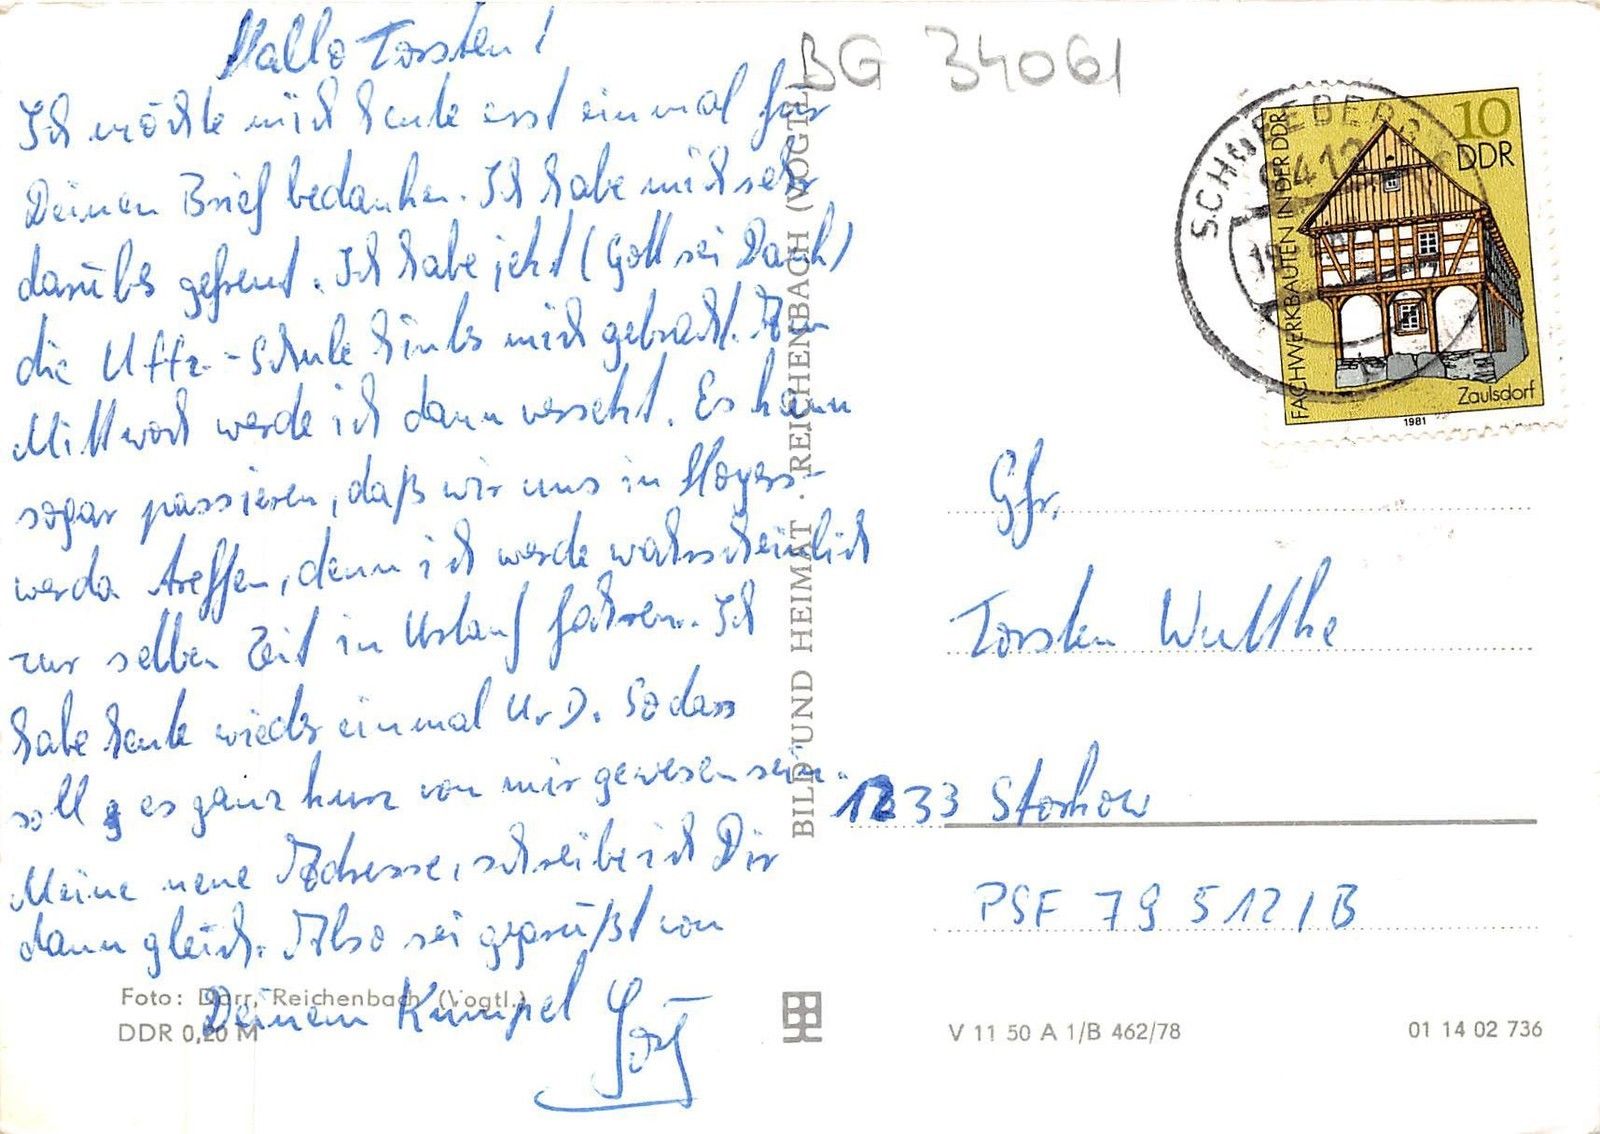 Hallo Torsten!
Ich möchte mich heute erst einmal für
Deinen Brief bedanken. Ich habe mich sehr
darüber gefreut. Ich habe jetzt (Gott sei Dank)
die Uffz.-Schule hinter mich gebracht. Am
Mittwoch werde ich dann versetzt. Es kann
sogar passieren, daß wir uns in Hoyers-
werda treffen, denn ich werde wahrscheinlich
zur selben Zeit in Urlaub fahren. Ich
habe heute wieder einmal UvD. So dass
soll es ganz kurz von mir gewesen sein.
Meine neue Adresse, schreibe ich Dir
dann gleich. Also sei gegrüßt von
Deinem Kumpel Jörg
Foto: Darr, Reichenbach (Vogtl.)
DDR 0,20 M
BILD UND HEIMAT · REICHENBACH (VOGTL)
BG 34061
SCHNEEBERG
10
DDR
FACHWERKBAUTEN IN DER DDR
Zaulsdorf
1981
Gfr.
Torsten Wuttke
1233 Storkow
PSF 79 512/B
V 11 50 A 1/B 462/78
01 14 02 736